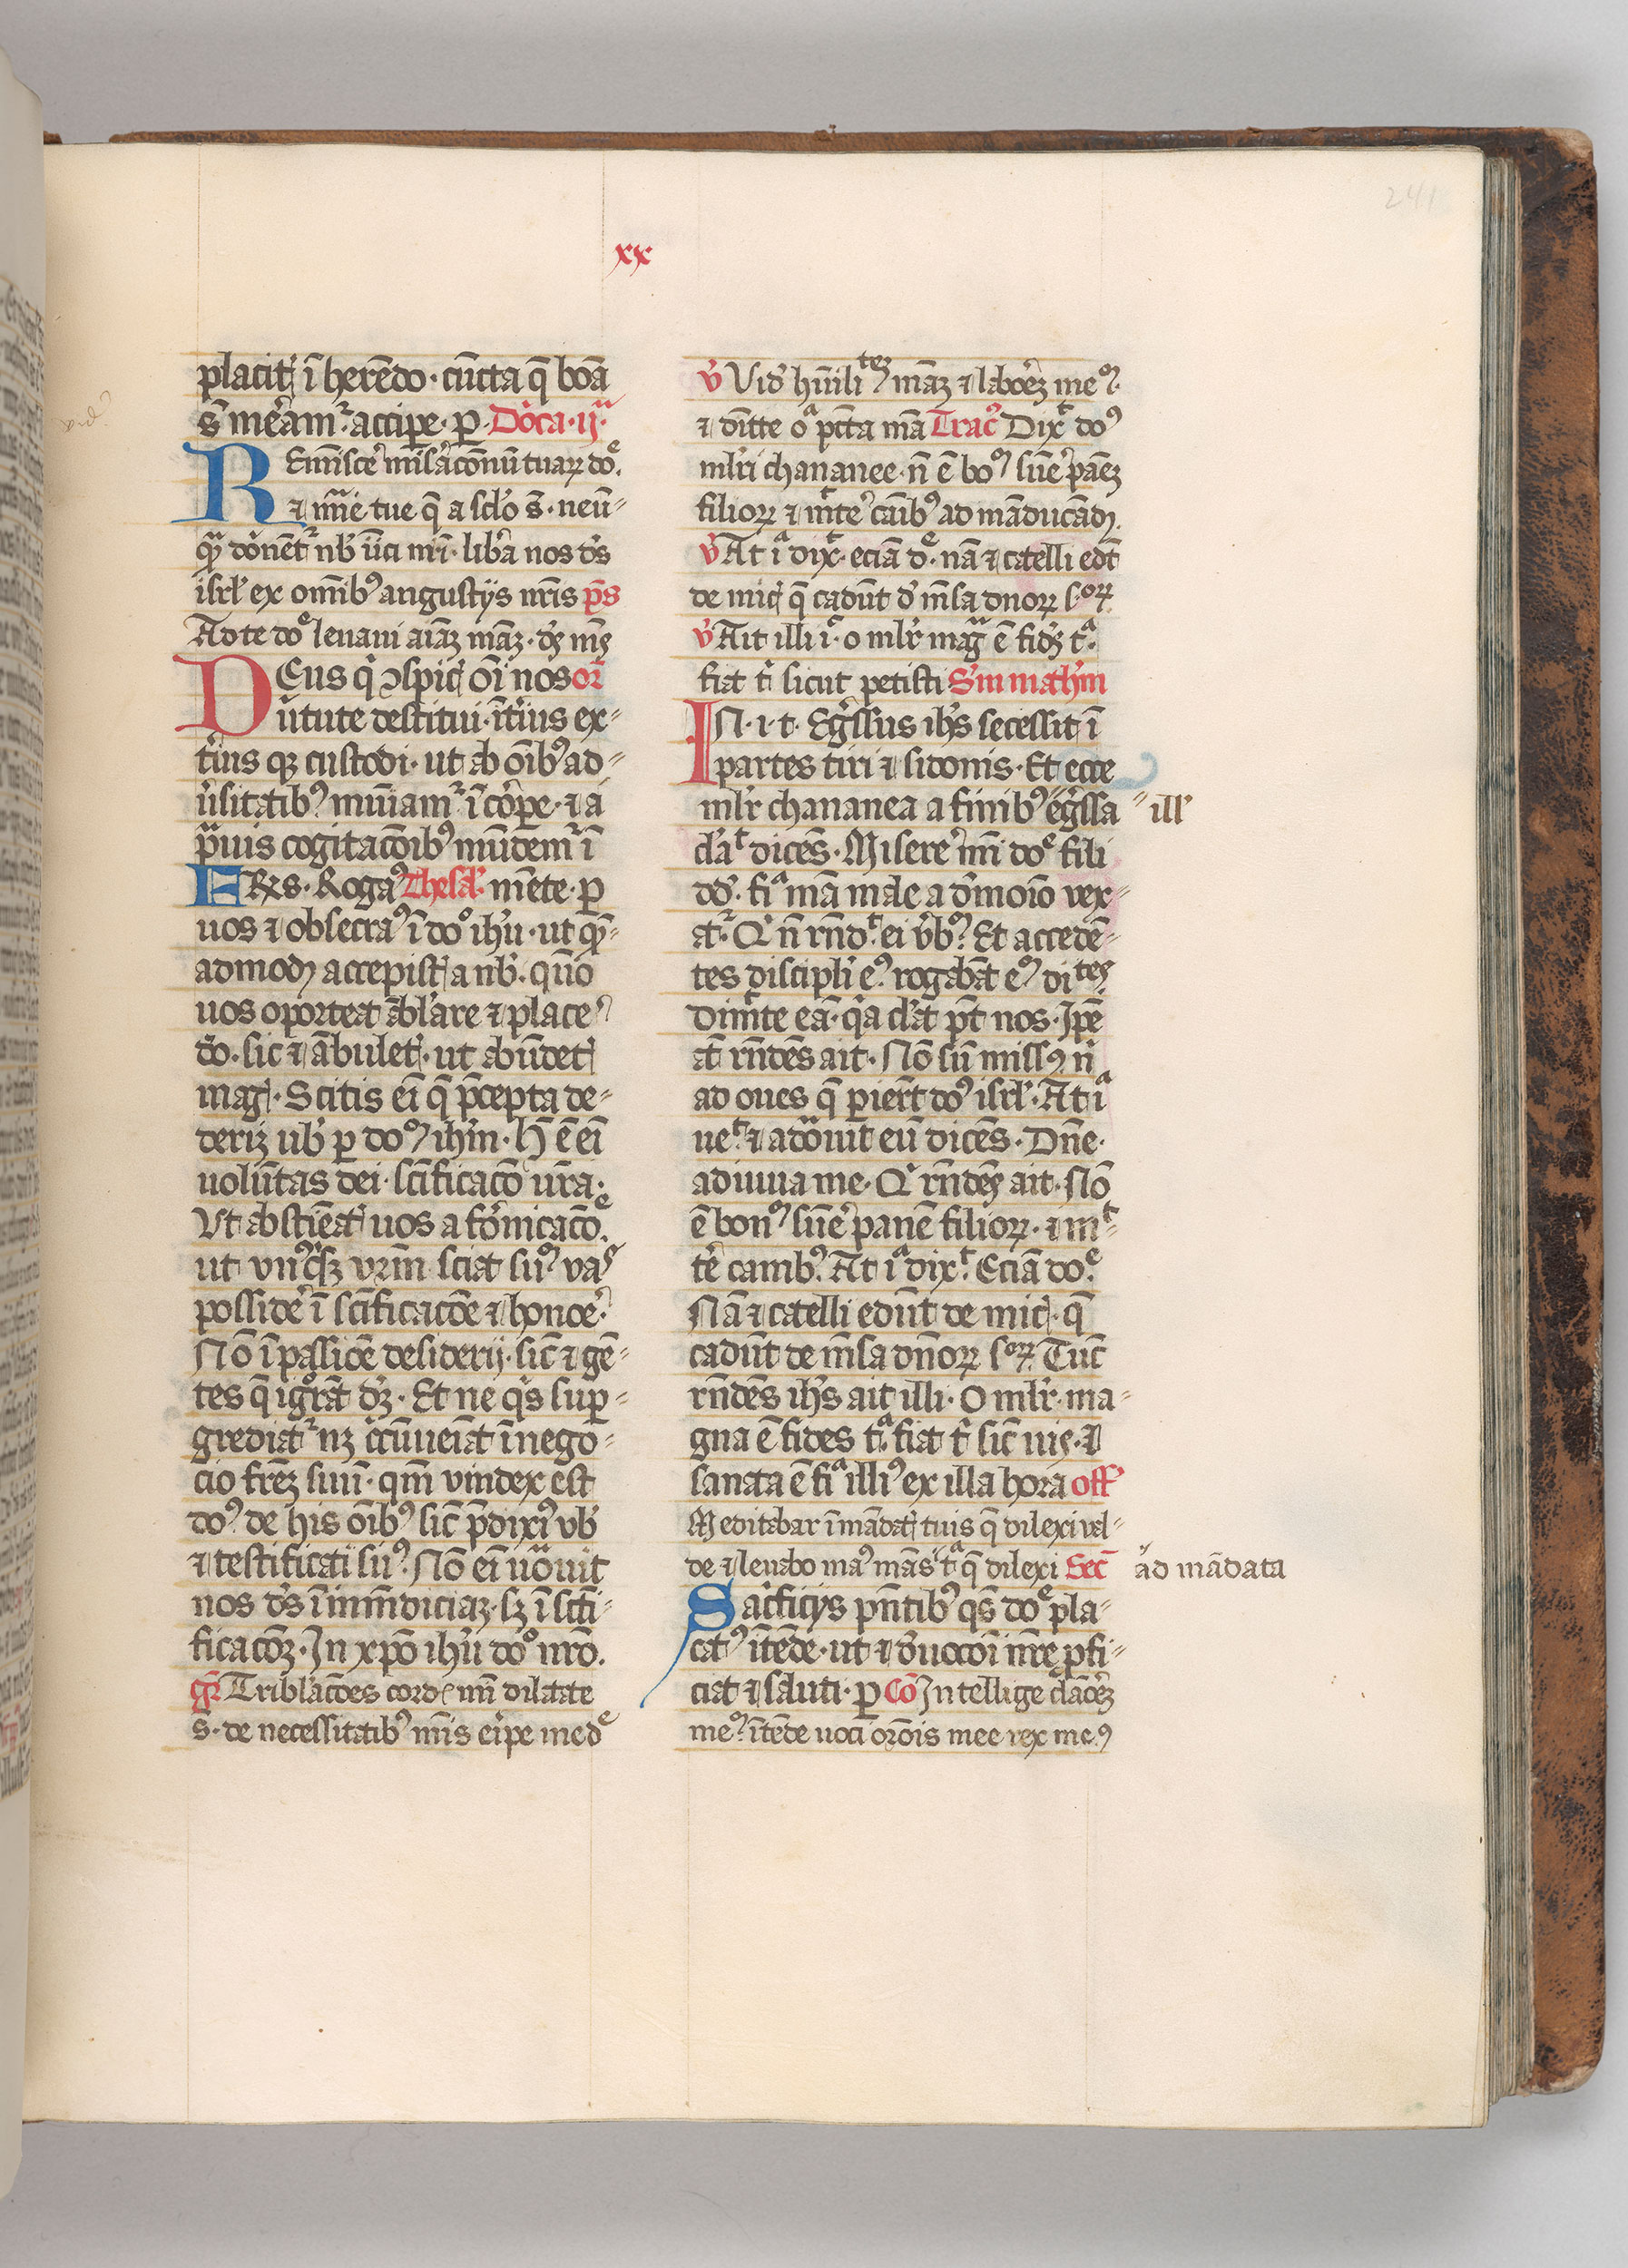 241
xx
placit ī herēdo · cūcta q̄ bōa
s̄ meream̄ᷣ accipe · ꝑ · Dōca · ij ·
REmīscē mīsacōnū tuaꝝ doᵉ ·
⁊ mīe tue q̄ a sclo s̄ · neū⸗
qᷓ donēt nb̄ inīci nr̄i · libera nos ds̄
isrl̄ ex omībꝰ angustijs nr̄is ps̄
Ad te doᵉ leuaui aīaꝫ māꝫ · ds̄ ms̄
DEus qͥ ꝯspic oī nos or̄
ūtute destitui · īterius ex⸗
tius qꝫ custodi · ut ab oībꝰ ad⸗
ūsitatibꝰ muniamᷣ ī corpe · ⁊ a
prauis cogitacōibꝰ mūdemᷣ ī
FRēs · Rogaꝰ Thesal̄ · mēte · ꝑ
uos ⁊ obsecraꝰ ī doº ihū · ut qᷓ⸗
admoꝺ accepist a nb̄ · quō
uos oporteat āblare ⁊ place
dō · sic ⁊ ābulet · ut abūdet
mag · Scitis eī q̄ p̄cepta de⸗
deriꝫ ub̄ ꝑ doꝰ ihm̄ · H̄ ē eī
volūtas dei · scīficacō ūra ·
Ut abstīeat uos a fōnicacōᵉ ·
ut vnꝰqͥsꝫ vrm̄ sciat suꝰ vaˢ
possidē ī scīficacōe ⁊ honoē ·
Nō ī passiōe desiderij · sic̄ ⁊ gē⸗
tes q̄ igrāt dꝫ · Et ne qͥs sup⸗
grediatᷣ nꝫ ccūueīat ī nego⸗
cio frēꝫ suū · qm̄ vindex est
doꝰ de his oībꝰ sic̄ p̄dixiꝰ vb̄
⁊ testificati suꝰ · Nō eī uocauit
nos ds̄ ī immūdiciaꝫ · sꝫ ī scti⸗
ficacōꝫ · In xpō ihū doº nrō ·
gr̄ Tribl̄acōes cordᵉ mī dilatate
s̄ · de necessitatibꝰ mīs eripe me dᵉ
v̄ Vid̄ hūiliᵗᵉꝫ māꝫ ⁊ laborēꝫ meꝰ ·
⁊ dītte oᵃ pctā mā Tracꝰ Dixᵗ doꝰ
mlr̄i chananee · n̄ ē boꝰ sūē panēꝫ
filioꝝ ⁊ mͥtē canibꝰ ad māducādꝫ
v̄ At iᵃ dixᵗ · eciā dᵉ · nā ⁊ catelli edt̄
de mic q̄ cadūt d̄ mēsa dnoꝝ sᵒꝝ
v̄ Ait illi iˢ · o mlr̄ magᵃ ē fidꝫ tᵃ ·
fiat tͥ sicut petisti Sm̄ math̄m
IN · i · t · Egressus ihs̄ secessit ī
partes tiri ⁊ sidonis · Et ecce
mlr̄ chananea a finibꝰ egressa ⸗ill'
claᵗ dicēs · Miserē mī doᵉ fili
dd̄ · fiᵃ mā male a demōio vex⸗
atᷣ · Qͥ n̄ rn̄dᵗ ei v̄bꝰ · Et accedē⸗
tes discipli eꝰ rogabāt eꝰ diᵗᵉˢ
dimͥte eā · qͥa clāt pt̄ nos · Ipē
at̄ rn̄dēs ait · Nō sū missꝰ nͥ
ad oues q̄ perier̄t doꝰ isrl̄ · At iᵃ
ueᵗ ⁊ adorauit eū dicēs · Dn̄e ·
adiuua me · Qͥ rn̄dēs ait · Nō
ē bonꝰ sūē panē filioꝝ · ⁊ mͥᵗ⸗
tē canibꝰ · At iᵃ dixᵗ · Eciā doᵉ ·
Nā ⁊ catelli edūt de mic · q̄
cadūt de mēsa dnōꝝ sᵒꝝ · Tūc
rn̄dēs ihs̄ ait illi · O mlr̄ · ma⸗
gna ē fides tᵃ · fiat tͥ sic̄ uis · ⁊
sanata ē fiᵃ illiꝰ ex illa hora off̄
Meditabar ī mādat tuis q̄ dilexi val⸗
de ⁊ leuabo maꝰ māsˢ tᵃ q̄ dilexi Secͣ ad mādata
Sacrificijs pn̄tibꝰ qs̄ doᵉ pla⸗
catꝰ ītēde · ut ⁊ deuocoī nr̄e ꝓfi⸗
ciat ⁊ saluti · ꝑ Cō Intellige clamorēꝫ
meꝰ · ītēde uoci orōis mee rex meꝰ